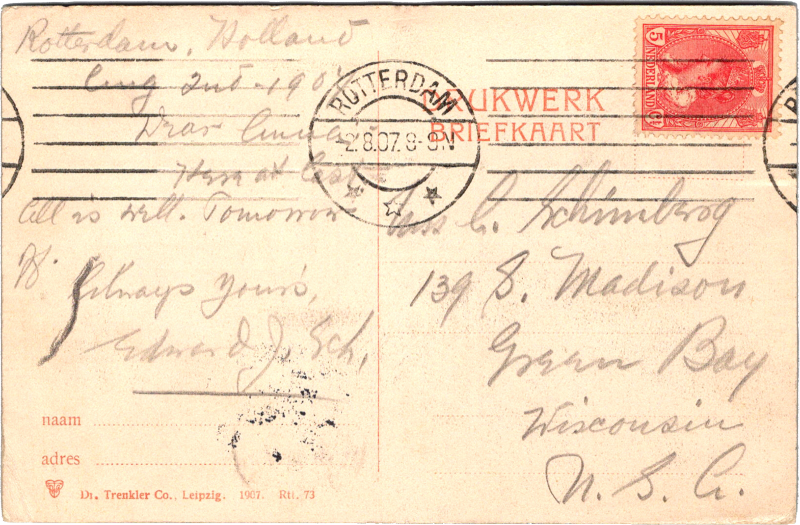 Rotterdam, Holland
Aug 2nd - 190
Dear Emma
Here at last
All is well. Tomorrow
Always yours,
Edward J. Sch.
naam
adres
Dr. Trenkler Co., Leipzig. 1907. Rtt. 73
ROTTERDAM
2.8.07. 8-9N
UKWERK
BRIEFKAART
5 NEDERLAND CT
Miss C. Schimberg
139 S. Madison
Green Bay
Wisconsin
U. S. A.